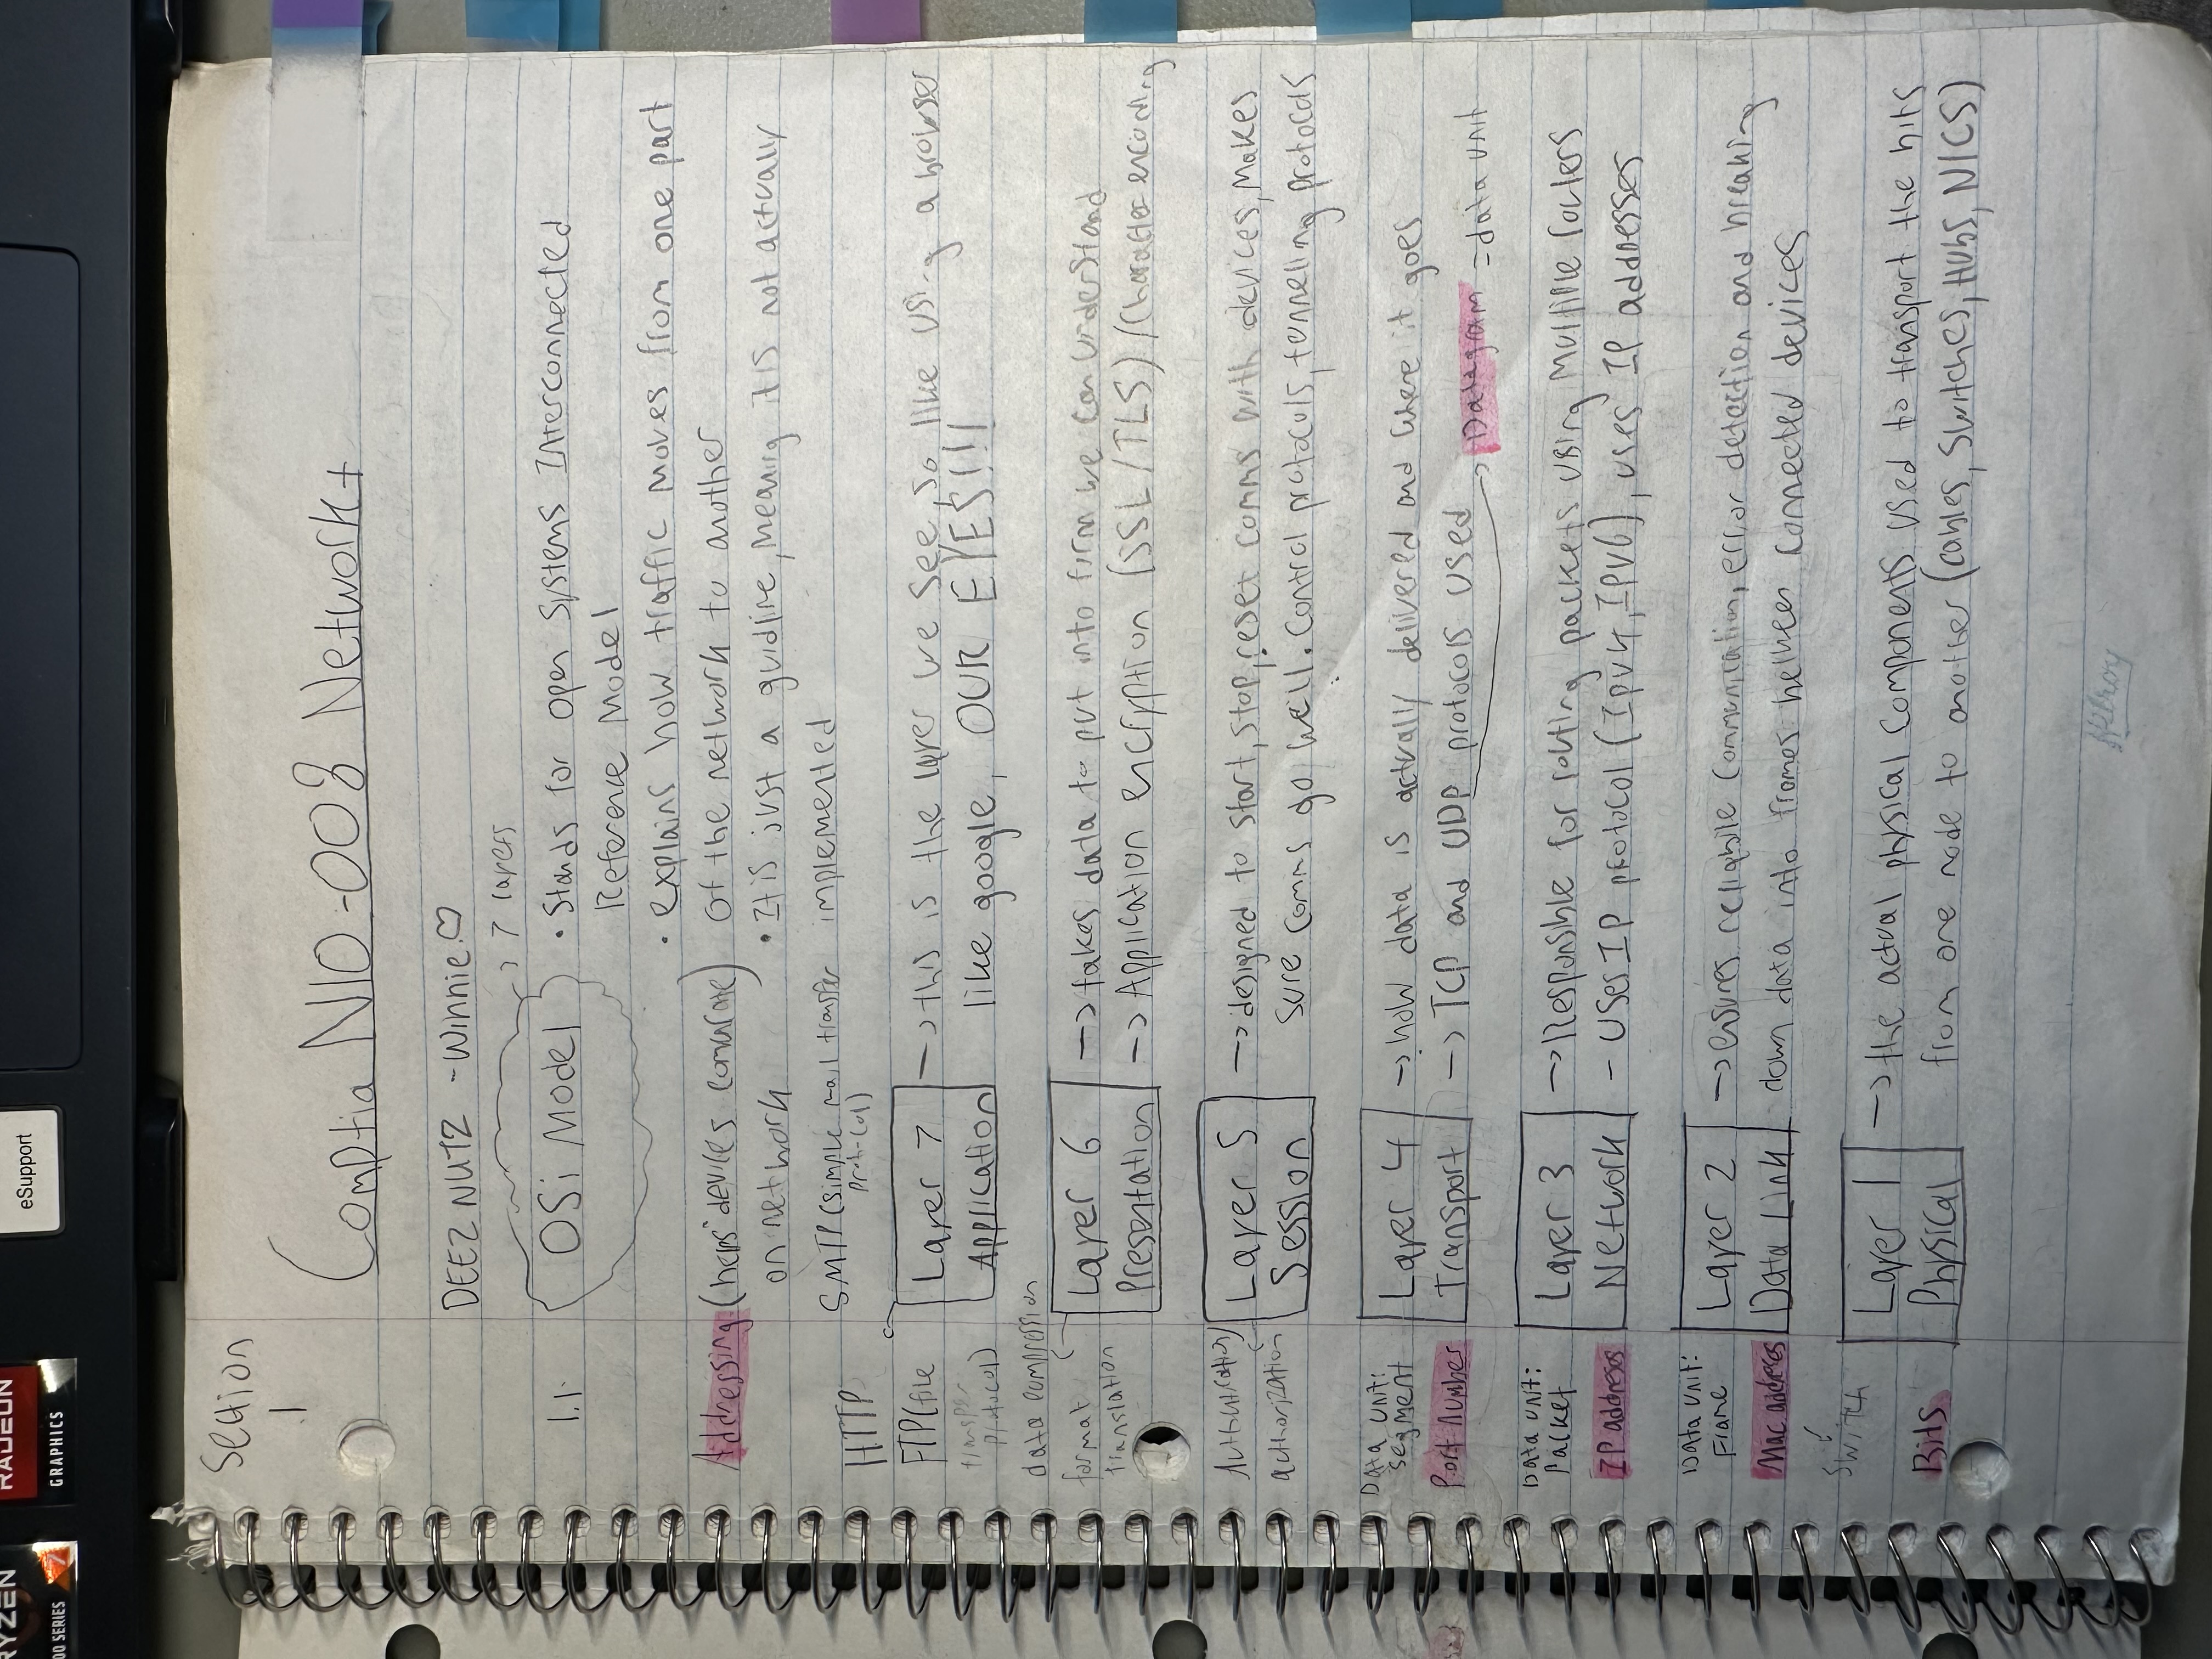 RYZEN
00 SERIES
7
RADEON
GRAPHICS
eSupport
Section
1
Comptia N10-008 Network+
DEEZ NUTZ - Winnie ♡
7 layers
1.1
OSi Model
• Stands for Open Systems Interconnected
Reference Model
• explains how traffic moves from one part
of the network to another
• It is just a guidline, meaning it is not actually
implemented
Addressing (helps devices
on network
SMTP (simple mail transfer
protocol)
HTTP
FTP (file
transfer
protocol)
Layer 7
Application
→ this is the layer we see, so like using a browser
like google, OUR EYES!!!
data compression
format
translation
Layer 6
Presentation
→ takes data to put into form we can understand
→ Application encryption (SSL/TLS) / Character encoding
Authentication
authorization
Layer 5
Session
→ designed to start, stop, reset comms with devices, makes
sure comms go well. Control protocols, tunneling protocols
Data unit:
segment
Port Number
Layer 4
Transport
→ how data is actually delivered and where it goes
→ TCP and UDP protocols used
→ Datagram = data unit
Data unit:
Packet
IP addreses
Layer 3
Network
→ Responsible for routing packets using multiple routers
- Uses IP protocol (IPV4, IPV6), uses IP addresses
Data unit:
Frame
Mac addreses
Switch
Layer 2
Data Link
→ ensures reliabile communication, error detection and breaking
down data into frames between connected devices
Bits
Layer 1
Physical
→ the actual physical components used to transport the bits
from one node to another (cables, switches, Hubs, NICS)
Hilroy